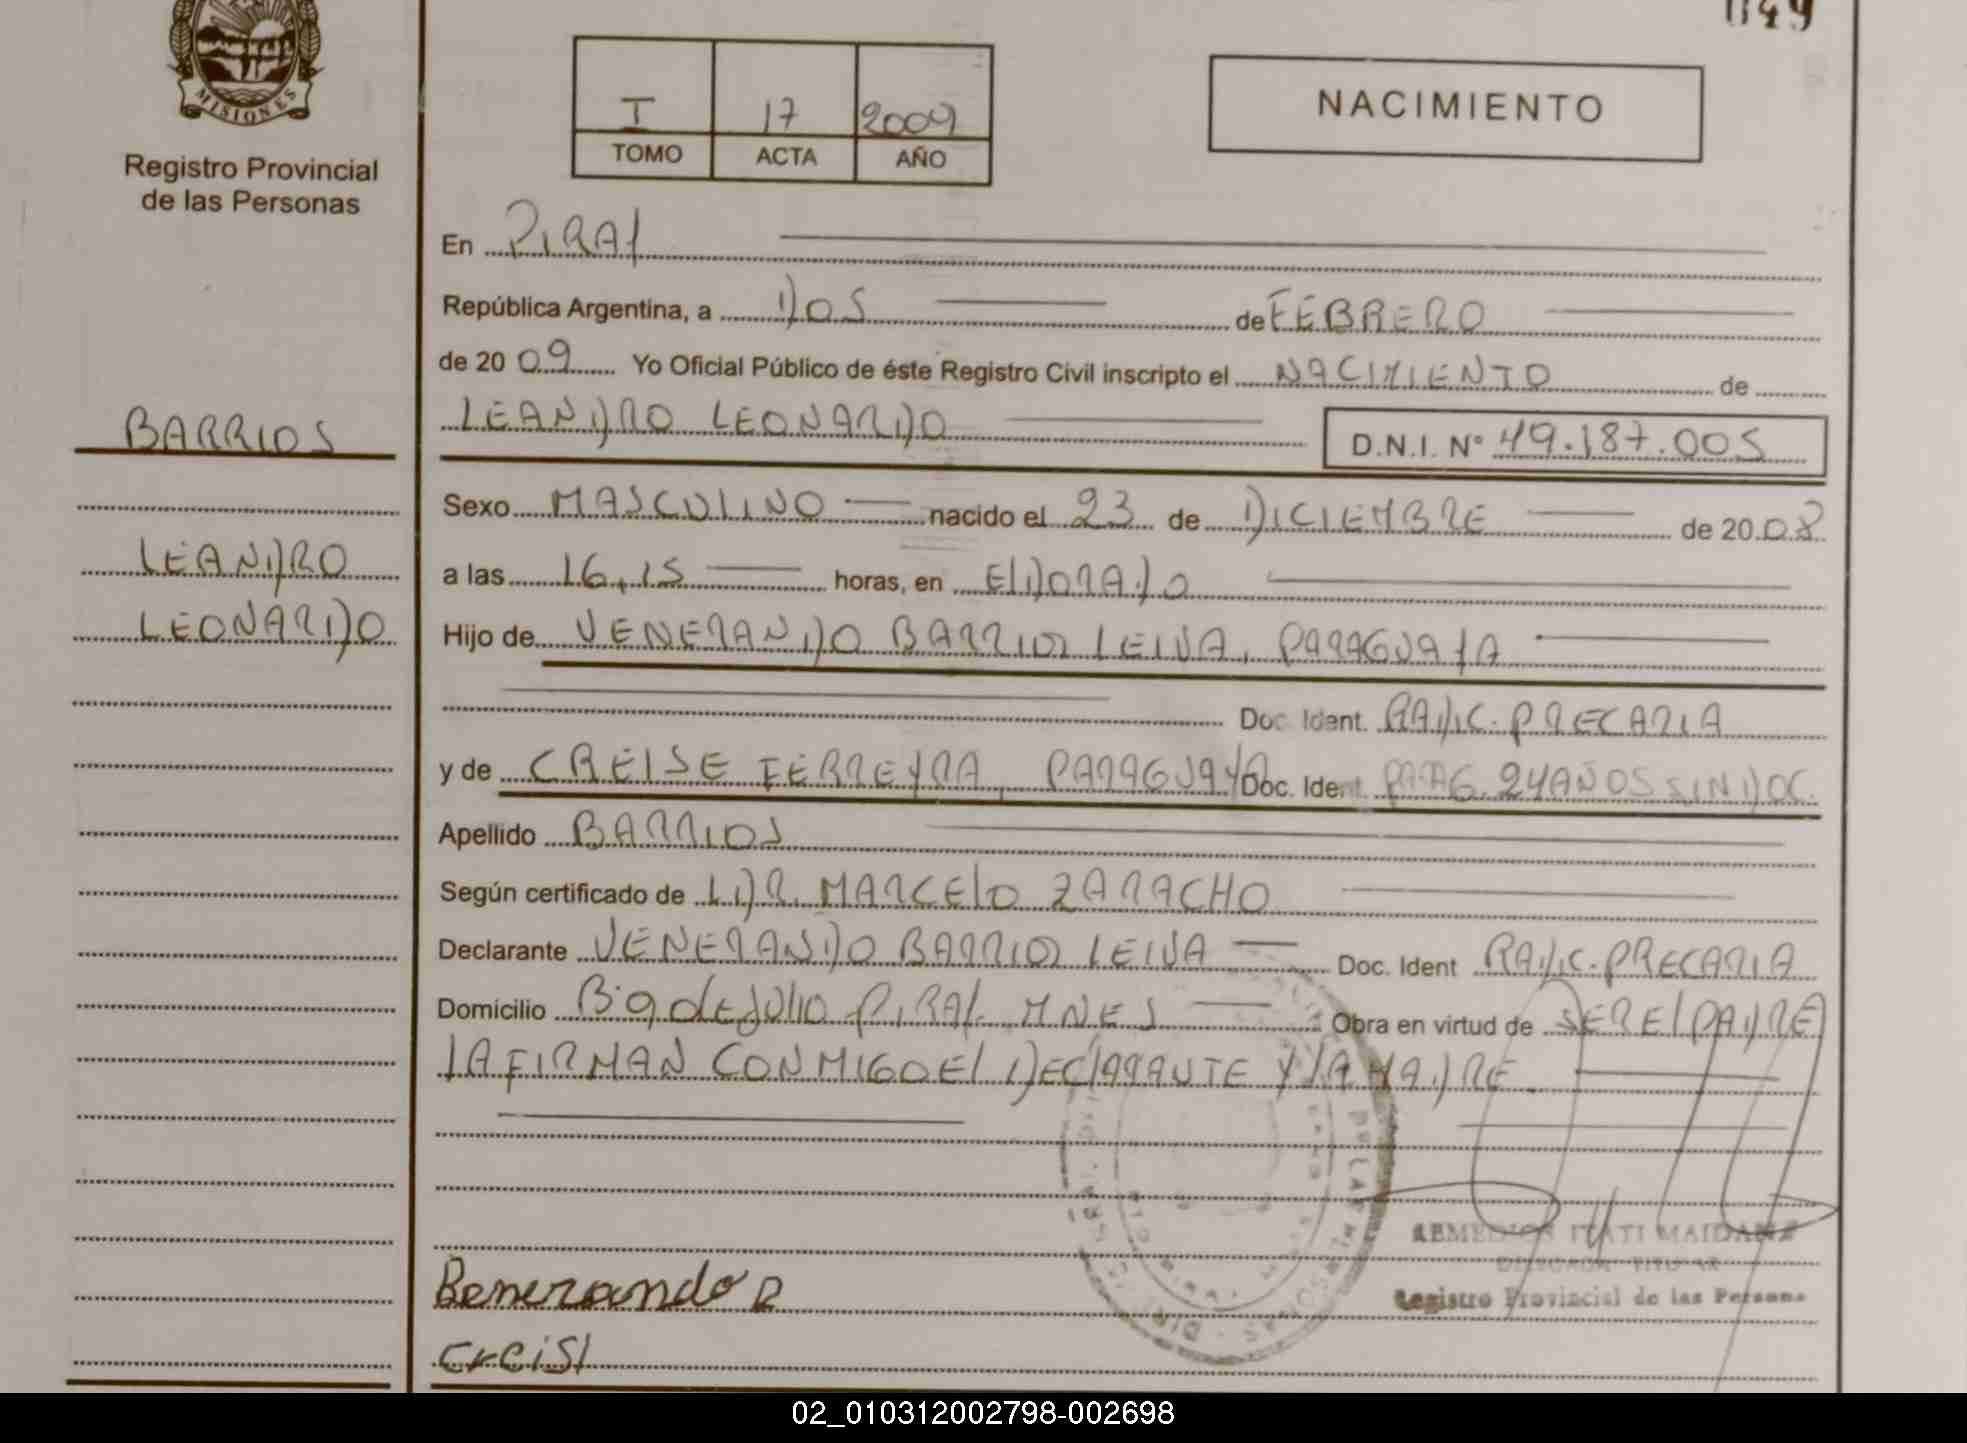 1149
MISIONES
Registro Provincial
de las Personas
BARRIOS
LEANDRO
LEONARDO
I 17 2009
TOMO ACTA AÑO
NACIMIENTO
En PIRAY
República Argentina, a DOS de FEBRERO
de 20 09 Yo Oficial Público de éste Registro Civil inscripto el NACIMIENTO de
LEANDRO LEONARDO D.N.I. Nº 49.187.005
Sexo MASCULINO nacido el 23 de DICIEMBRE de 20 08
a las 16,15 horas, en ELDORADO
Hijo de VENERANDO BARRIOS LEIVA, PARAGUAYA
Doc. Ident. RADIC. PRECARIA
y de CREISE FERREYRA, PARAGUAYA Doc. Ident. PARAG. 24 AÑOS SIN DOC.
Apellido BARRIOS
Según certificado de L DR. MARCELO ZARACHO
Declarante VENERANDO BARRIOS LEIVA Doc. Ident RADIC. PRECARIA
Domicilio Bº 9 de JULIO PIRAY MNES Obra en virtud de SER EL PADRE
LA FIRMAN CONMIGO EL DECLARANTE Y LA MADRE
REMEDIOS ITATI MAIDANA
DELEGADA TITULAR
Registro Provincial de las Persona
Benerando B
creisi
02_010312002798-002698